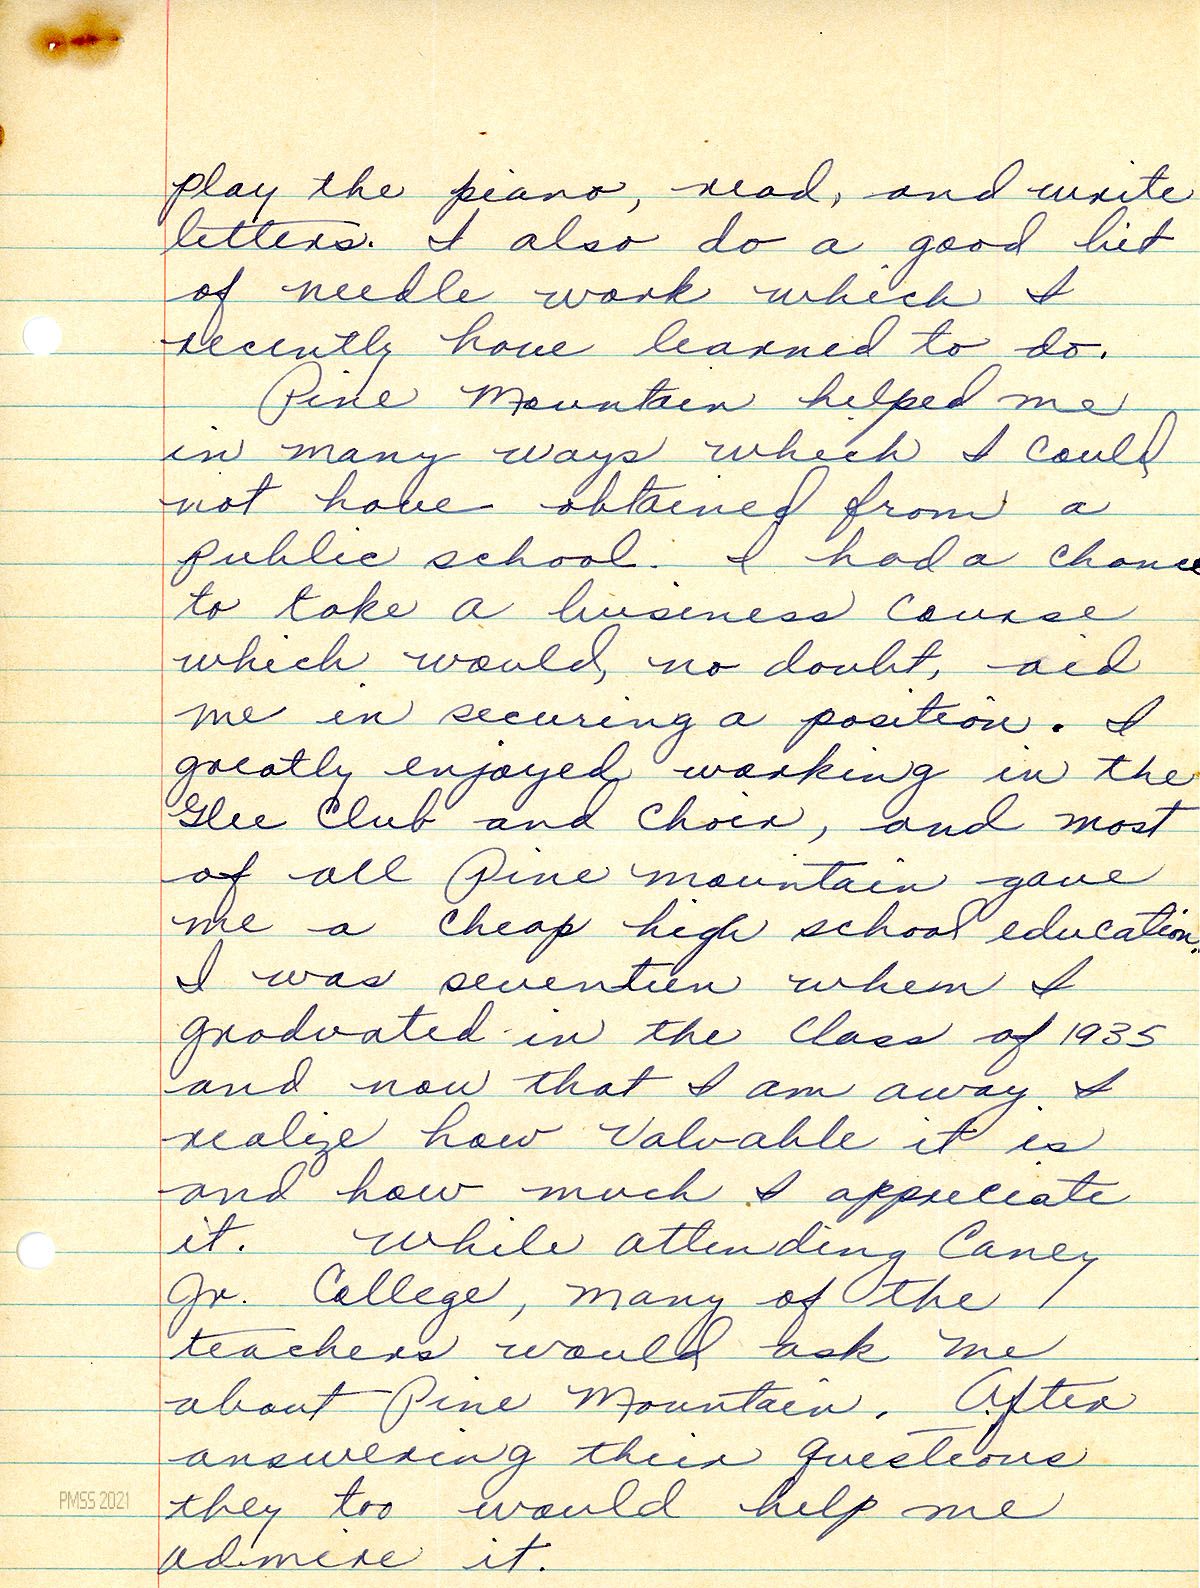 play the piano, read, and write
letters. I also do a good bit
of needle work which I
recently have learned to do.
Pine Mountain helped me
in many ways which I could
not have obtained from a
public school. I had a chance
to take a business course
which would, no doubt, aid
me in securing a position. I
greatly enjoyed working in the
Glee Club and Choir, and most
of all Pine mountain gave
me a cheap high school education.
I was seventeen when I
graduated in the Class of 1935
and now that I am away I
realize how valuable it is
and how much I appreciate
it. While attending Caney
Jr. College, many of the
teachers would ask me
about Pine Mountain. After
answering their questions
they too would help me
admire it.
PMSS 2021